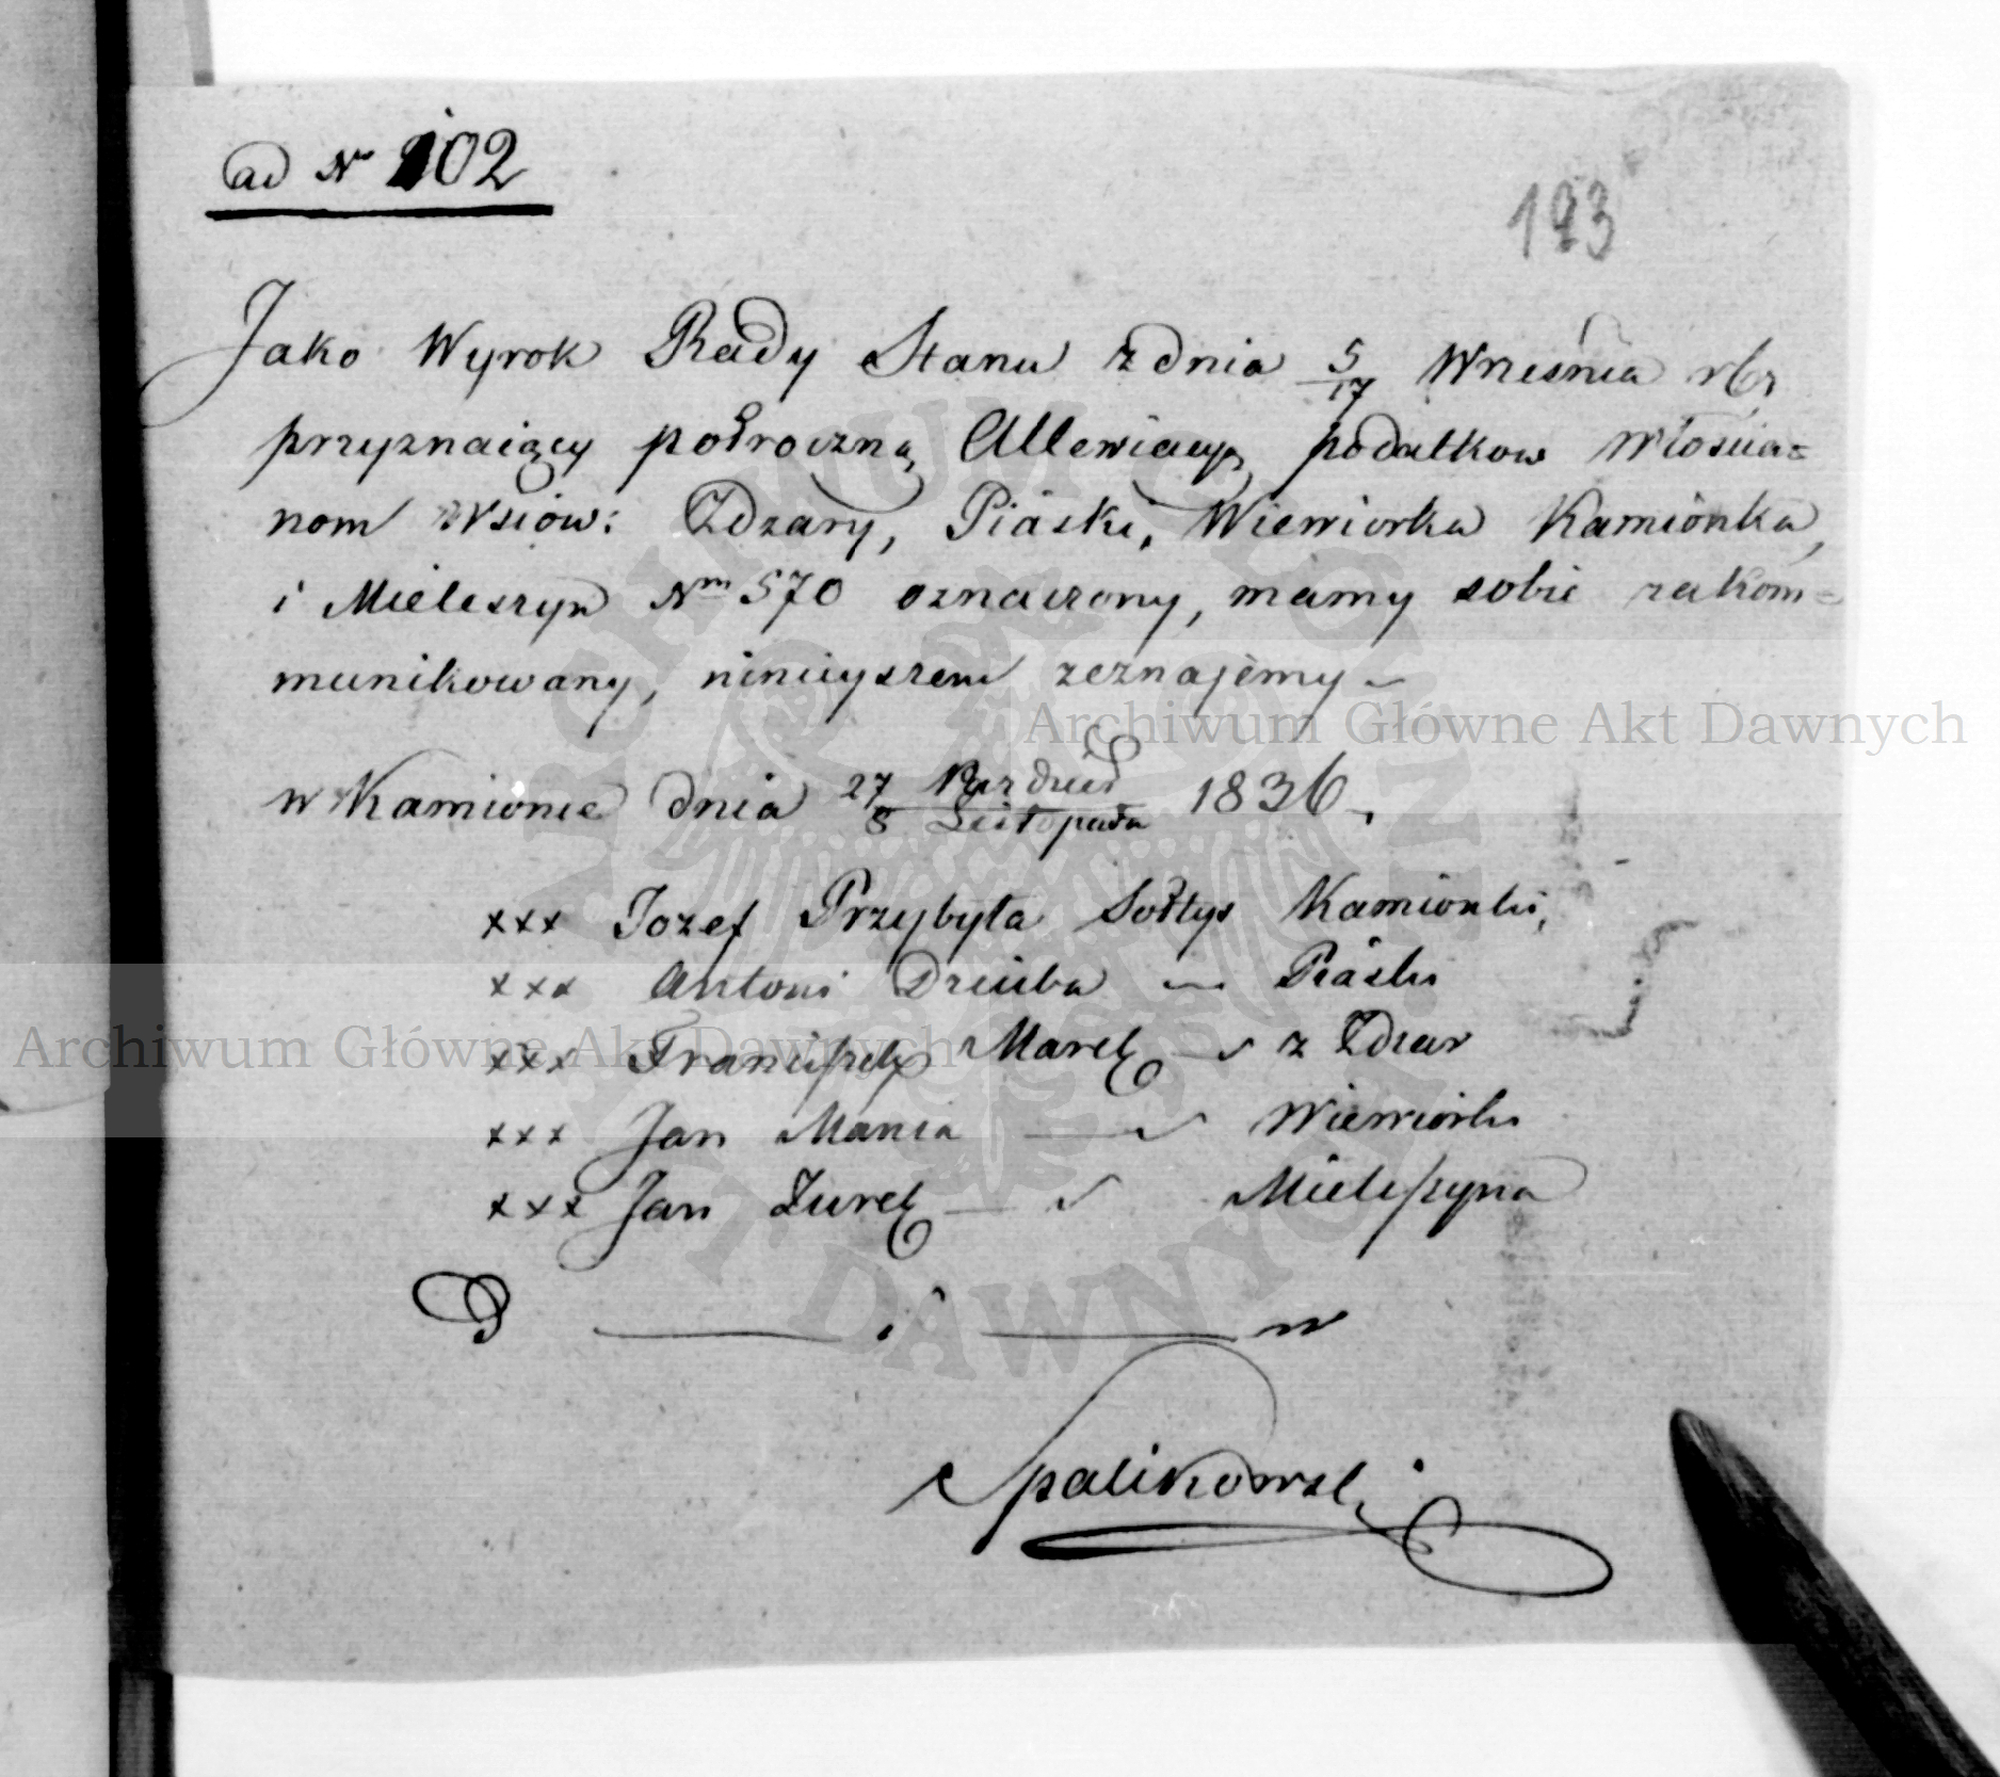 ad Nr 102
193
Jako Wyrok Rady Stanu z dnia 5/17 Wrzesnia rbz
przyznaiący połroczną Allewiacyą podatkow włościa=
nom wsiow: Zdzary, Piaski, Wiewiorka Kamionka,
i Mieleszyn Nm 570 oznaczony, mamy sobie zakom=
munikowany, nineiyszem zeznajemy –
w Kamionie dnia 27 Pazdzier / 8 Listopada 1836.
xxx Jozef Przybyła Sołtys Kamionki,
xxx Antoni Dziuba — Piaski
xxx Franciszek Marek — z Zdzar
xxx Jan Mania — Wiewiorki
xxx Jan Żurek — Mieleszyna
i w
Spalikowski
Archiwum Główne Akt Dawnych
Archiwum Główne Akt Dawnych
ARCHIWUM GŁÓWNE AKT DAWNYCH